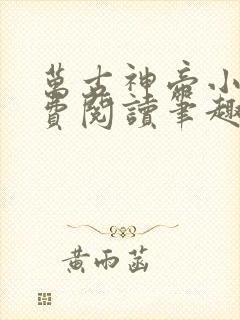 萬古神帝小
費閱讀筆趣
黃雨菡